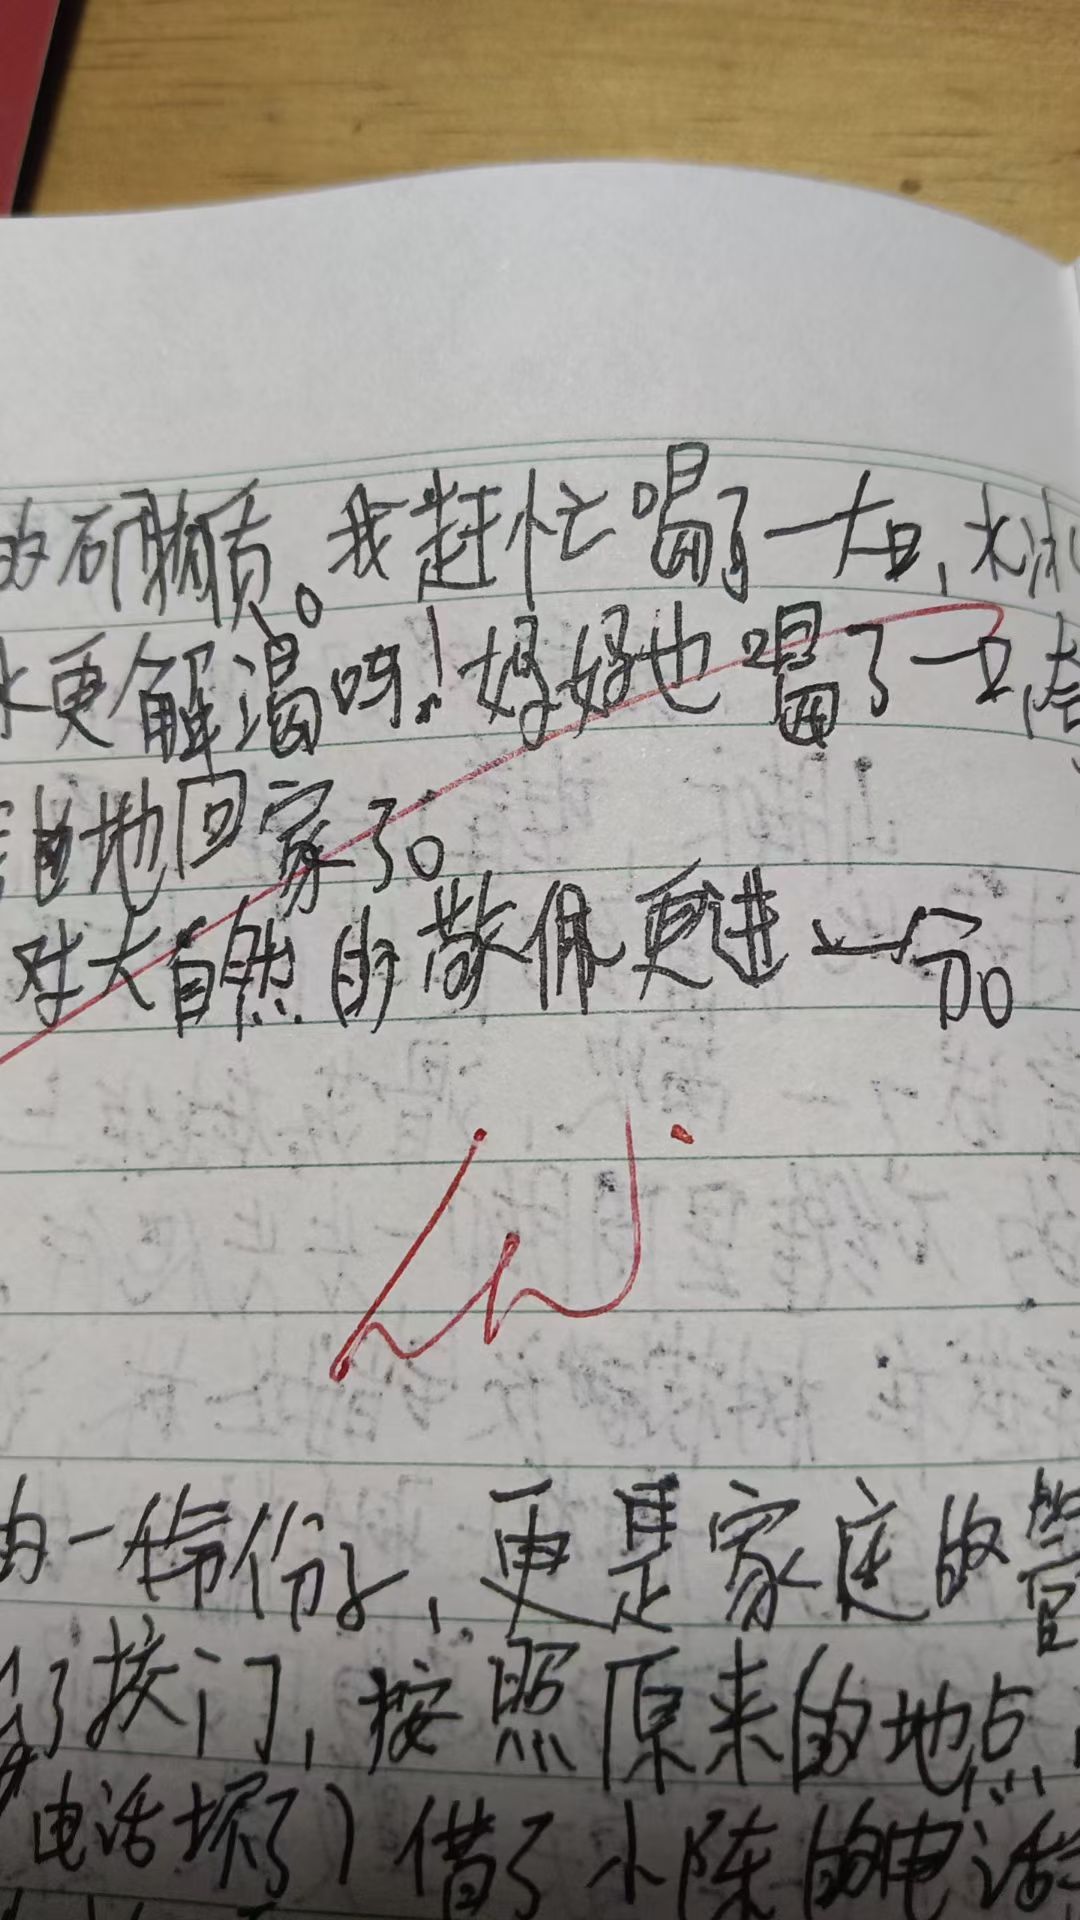 的矿物质。我赶忙喝了一大口,水冰
水更解渴呀!妈妈也喝了一口,
地回家了。
对大自然的敬佩更进一分。
的一份子,更是家庭的管
了按门,按照原来的地点
电话坏了)借了小陈的电话